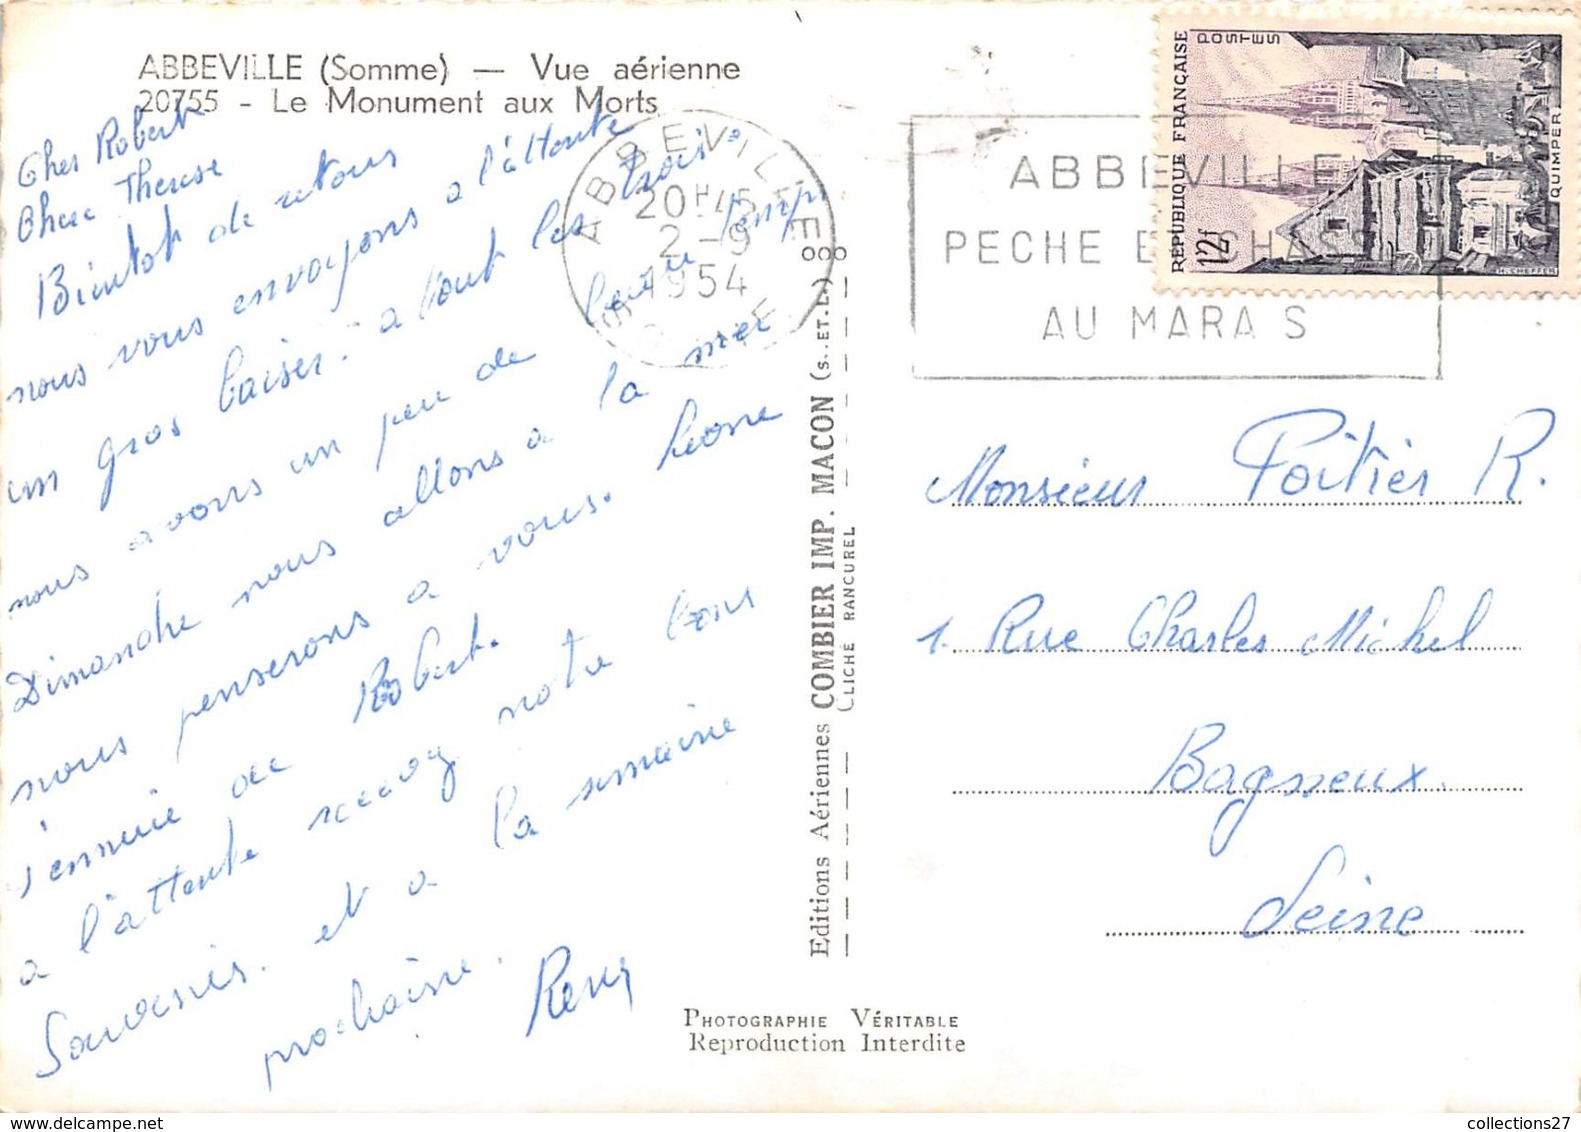 ABBEVILLE (Somme) — Vue aérienne
20755 - Le Monument aux Morts
Cher Robert
Chere Therese
Bientot de retour
nous vous envoyons a l'attente
un gros baiser. a tout les trois
nous avons un peu de beau temp
Dimanche nous allons a la mer
nous penserons a vous. Leone
s'ennuie de Robert.
a l'attente recevez notre bons
Souvenirs. et a la semaine
prochaine.
Remy
ABBEVILLE
20H45
2-9
1954
SOMME
ABBEVILLE
PECHE ET CHASSE
AU MARAIS
REPUBLIQUE FRANÇAISE
POSTES
12f
QUIMPER
H. CHEFFER
Editions Aériennes COMBIER IMP. MACON (S.-ET-L.)
CLICHÉ RANCUREL
Monsieur Poitier R.
1. Rue Charles Michel
Bagneux.
Seine
PHOTOGRAPHIE VÉRITABLE
Reproduction Interdite
collections27